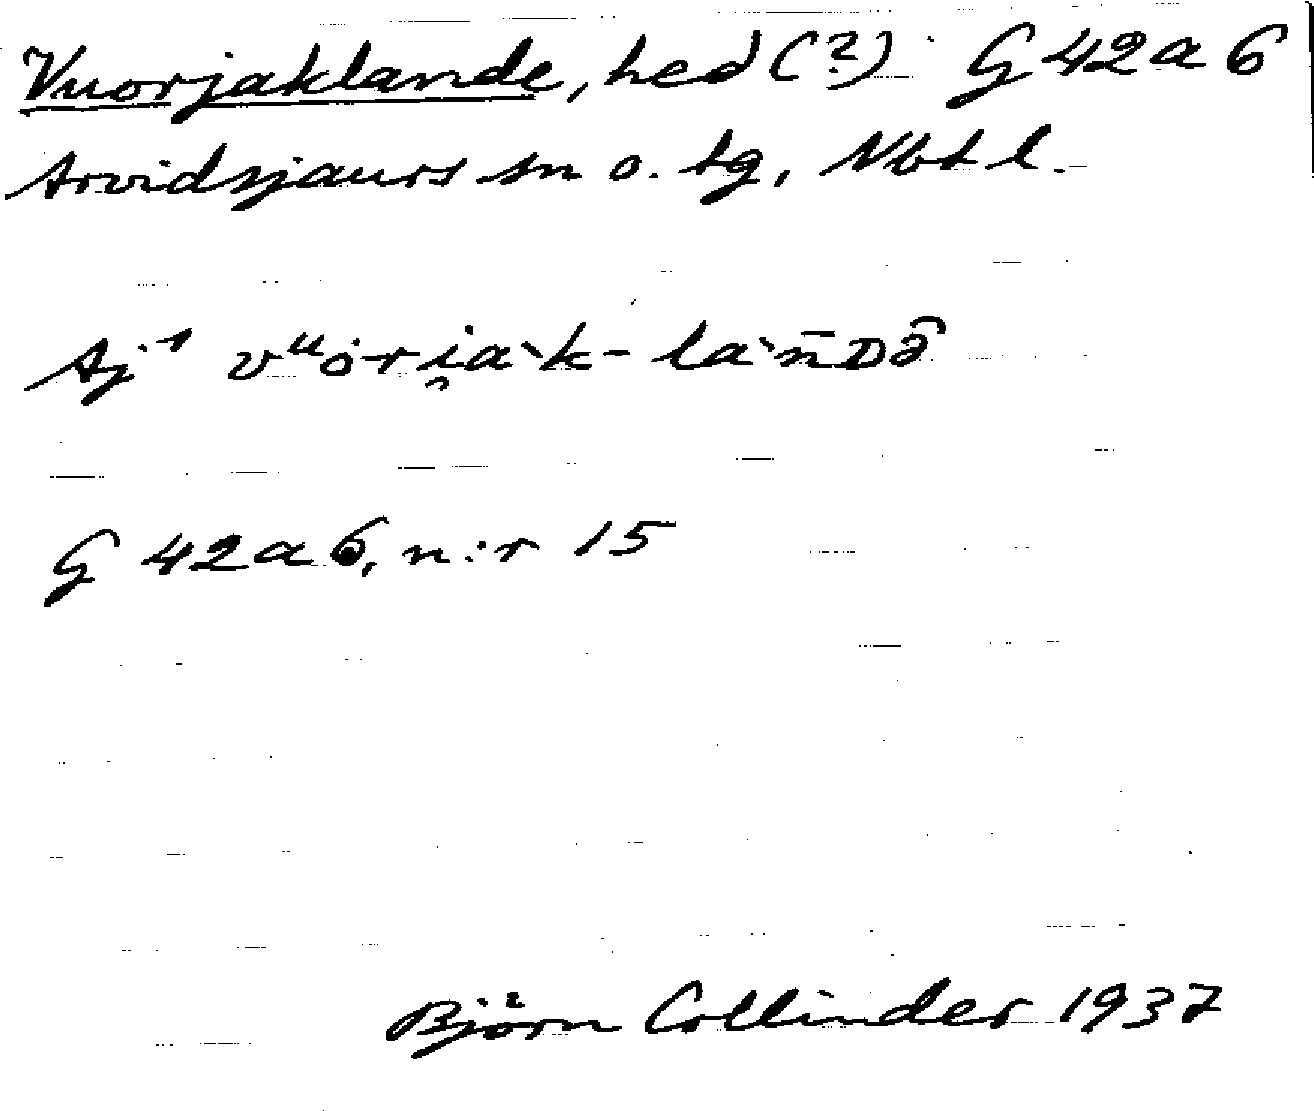 Vuorjaklande, hed (?) G 42 a 6
Arvidsjaurs sn o. tg, Nbtl.
Aj¹ vᵘȯri̯a`k-la`n̄ᴅə̑
G 42 a 6, n:r 15
Björn Collinder 1937